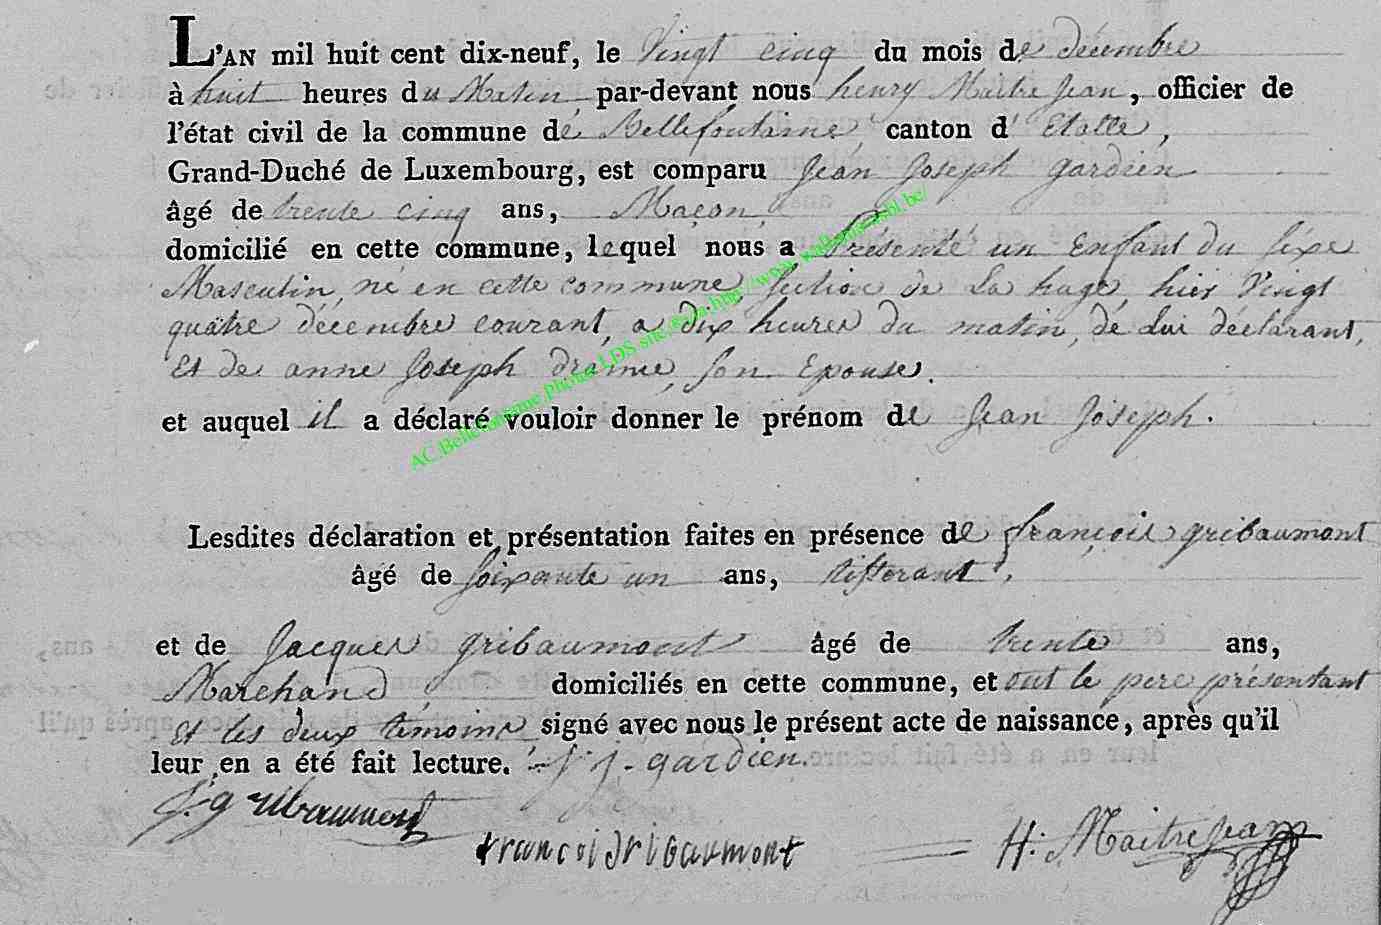 L'AN mil huit cent dix-neuf, le Vingt cinq du mois de décembre
à huit heures du Matin par-devant nous henry Maitre Jean, officier de
l'état civil de la commune de Bellefontaine canton d'Etalle,
Grand-Duché de Luxembourg, est comparu Jean Joseph gardien
âgé de trente cinq ans, Maçon,
domicilié en cette commune, lequel nous a Présenté un Enfant du sixe
Masculin, né en cette commune, section de La hage, hier Vingt
quatre décembre courant, a dix heures du matin, de Lui déclarant,
Et de anne Joseph son Epouse.
et auquel il a déclaré vouloir donner le prénom de Jean Joseph.
Lesdites déclaration et présentation faites en présence de françois gribaumont
âgé de soixante un ans, tisserant,
et de Jacques gribaumont âgé de trente ans,
Marchand domiciliés en cette commune, et ont le pere présentant
Et les deux témoins signé avec nous le présent acte de naissance, après qu'il
leur en a été fait lecture. j. j. gardien.
J. gribaumont
francoi gribaumont H. MaitreJean
AC.Bellefontaine Photos LDS site